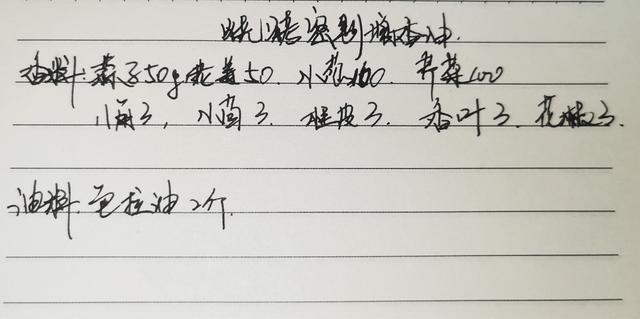 烧烤秘制增香油.
香料:蒜子50g 老姜50. 小葱100. 芹菜100
八角3, 小茴3. 桂皮3. 香叶3. 花椒3.
油料:色拉油2斤.